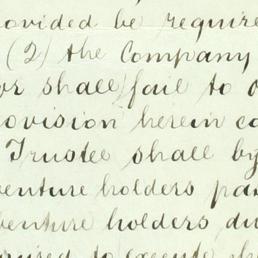 rovided be require
(2) the Company
or shall fail to o
rovision herein co
Trustee shall by
enture holders pas
benture holders du
uired to execute